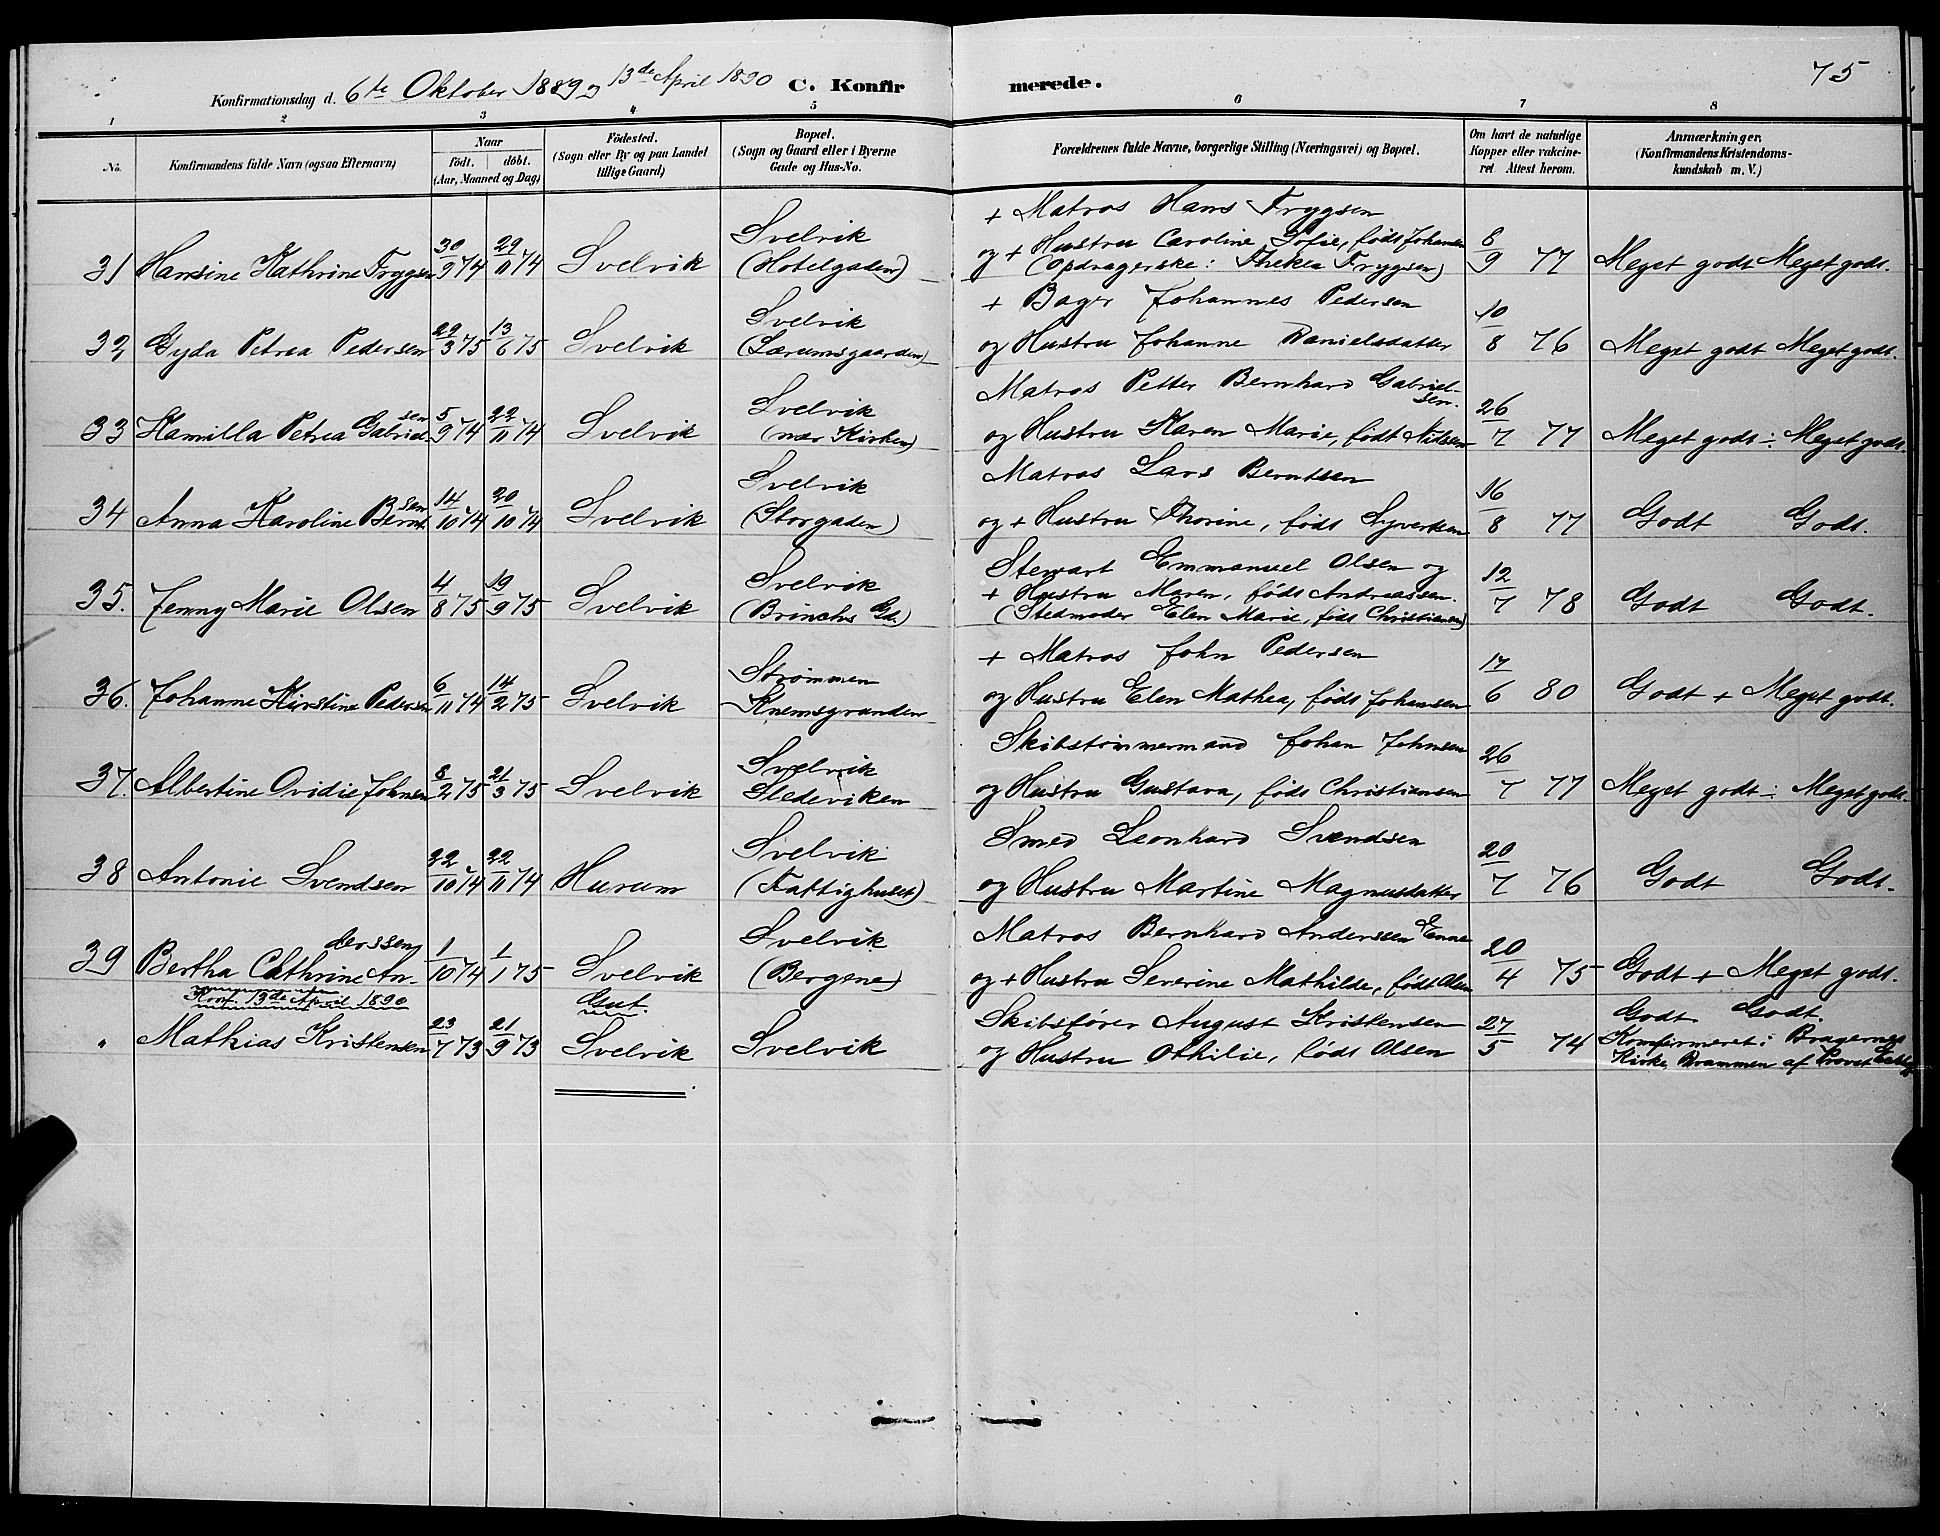 75
Konfirmationsdag d. 6te Oktober 1889 og 13de April 1890 C. Konfirmerede.
1 2 3 4 5 6 7 8
No. Konfirmandens fulde Navn (ogsaa Efternavn) Naar født. døbt. (Aar, Maaned og Dag) Fødested. (Sogn eller By og paa Landet tillige Gaard) Bopæl. (Sogn og Gaard eller i Byerne Gade og Hus-No. Forældrenes fulde Navne, borgerlige Stilling (Næringsvei) og Bopæl. Om havt de naturlige Kopper eller vakcineret Attest herom. Anmærkninger. (Konfirmandens Kristendomskundskab m. V.)
31 Hansine Kathrine Trygsen 30/9 74 29/11 74 Svelvik Svelvik (Hotelgaden) + Matros Hans Trygsen
og + Hustru Caroline Sofie, født Johansen
(Opdragerske: Thekla Trygsen) 8/9 77 Meget godt Meget godt.
32 Gyda Petrea Pedersen 29/3 75 13/6 75 Svelvik Svelvik (Lærumsgaarden) + Bager Johannes Pedersen
og Hustru Johanne Danielsdatter 10/8 76 Meget godt Meget godt.
33 Kamilla Petrea Gabrielsen 5/9 74 22/11 74 Svelvik Svelvik (nær Kirken) Matros Petter Bernhard Gabrielsen.
og Hustru Karen Marie, født Nilsen 26/7 77 Meget godt ÷ Meget godt.
34 Anna Karoline Berntsen 14/10 74 20/10 74 Svelvik Svelvik (Storgaden) Matros Lars Berntsen
og + Hustru Thorine, født Syvertsen 16/8 77 Godt Godt.
35. Jenny Marie Olsen 4/8 75 19/9 75 Svelvik Svelvik (Brinchs Gd.) Stewart Emmanuel Olsen og
+ Hustru Maren, født Andreassen.
(Stedmoder Elen Marie, født Christiansen) 12/7 78 Godt Godt.
36. Johanne Kirstine Pedersen 6/11 74 14/2 75 Svelvik Strømmen Knemsgranden + Matros John Pedersen
og Hustru Elen Mathea, født Johansen 17/6 80 Godt + Meget godt.
37. Albertine Ovidie Johnsen 8/2 75 21/3 75 Svelvik Svelvik Sledeviken Skibstømmermand Johan Johnsen
og Hustru Gustava, født Christiansen 26/7 77 Meget godt ÷ Meget godt.
38 Antonie Svendsen 22/10 74 22/11 74 Hurum Svelvik (Fattighuset) Smed Leonhard Svendsen
og Hustru Martine Magnusdatter 20/7 76 Godt Godt.
39 Bertha Cathrine Anderssen 1/10 74 1/1 75 Svelvik Svelvik (Bergene) Matros Bernhard Anderssen Enne
og + Hustru Severine Mathilde, født Olsen 20/4 75 Godt + Meget godt.
Konf. 13de April 1890 Gut.
" Mathias Kristensen 23/7 73 21/9 73 Svelvik Svelvik Skibsfører August Kristensen
og Hustru Othilie, født Olsen 27/5 74 Godt. Godt.
Konfirmeret i Bragernes
Kirke Drammen af Provst